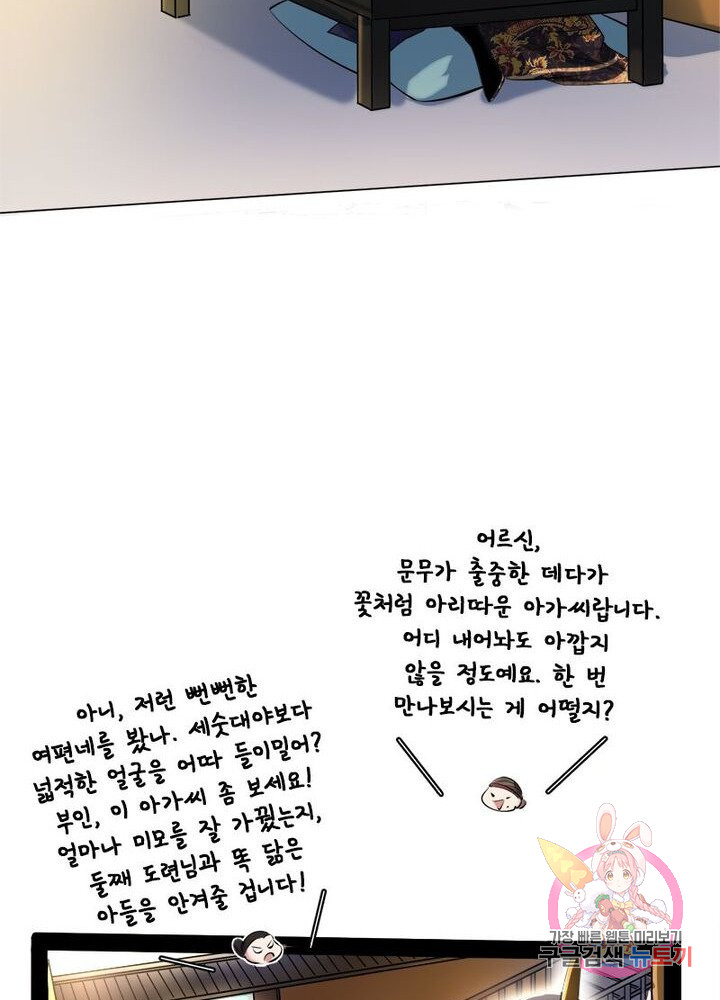 어르신,
문무가 출중한 데다가
꽃처럼 아리따운 아가씨랍니다.
어디 내어놔도 아깝지
않을 정도예요. 한 번
만나보시는 게 어떨지?
아니, 저런 뻔뻔한
여편네를 봤나. 세숫대야보다
넓적한 얼굴을 어따 들이밀어?
부인, 이 아가씨 좀 보세요!
얼마나 미모를 잘 가꿨는지,
둘째 도련님과 똑 닮은
아들을 안겨줄 겁니다!
가장 빠른 웹툰 미리보기
구글검색 뉴토끼